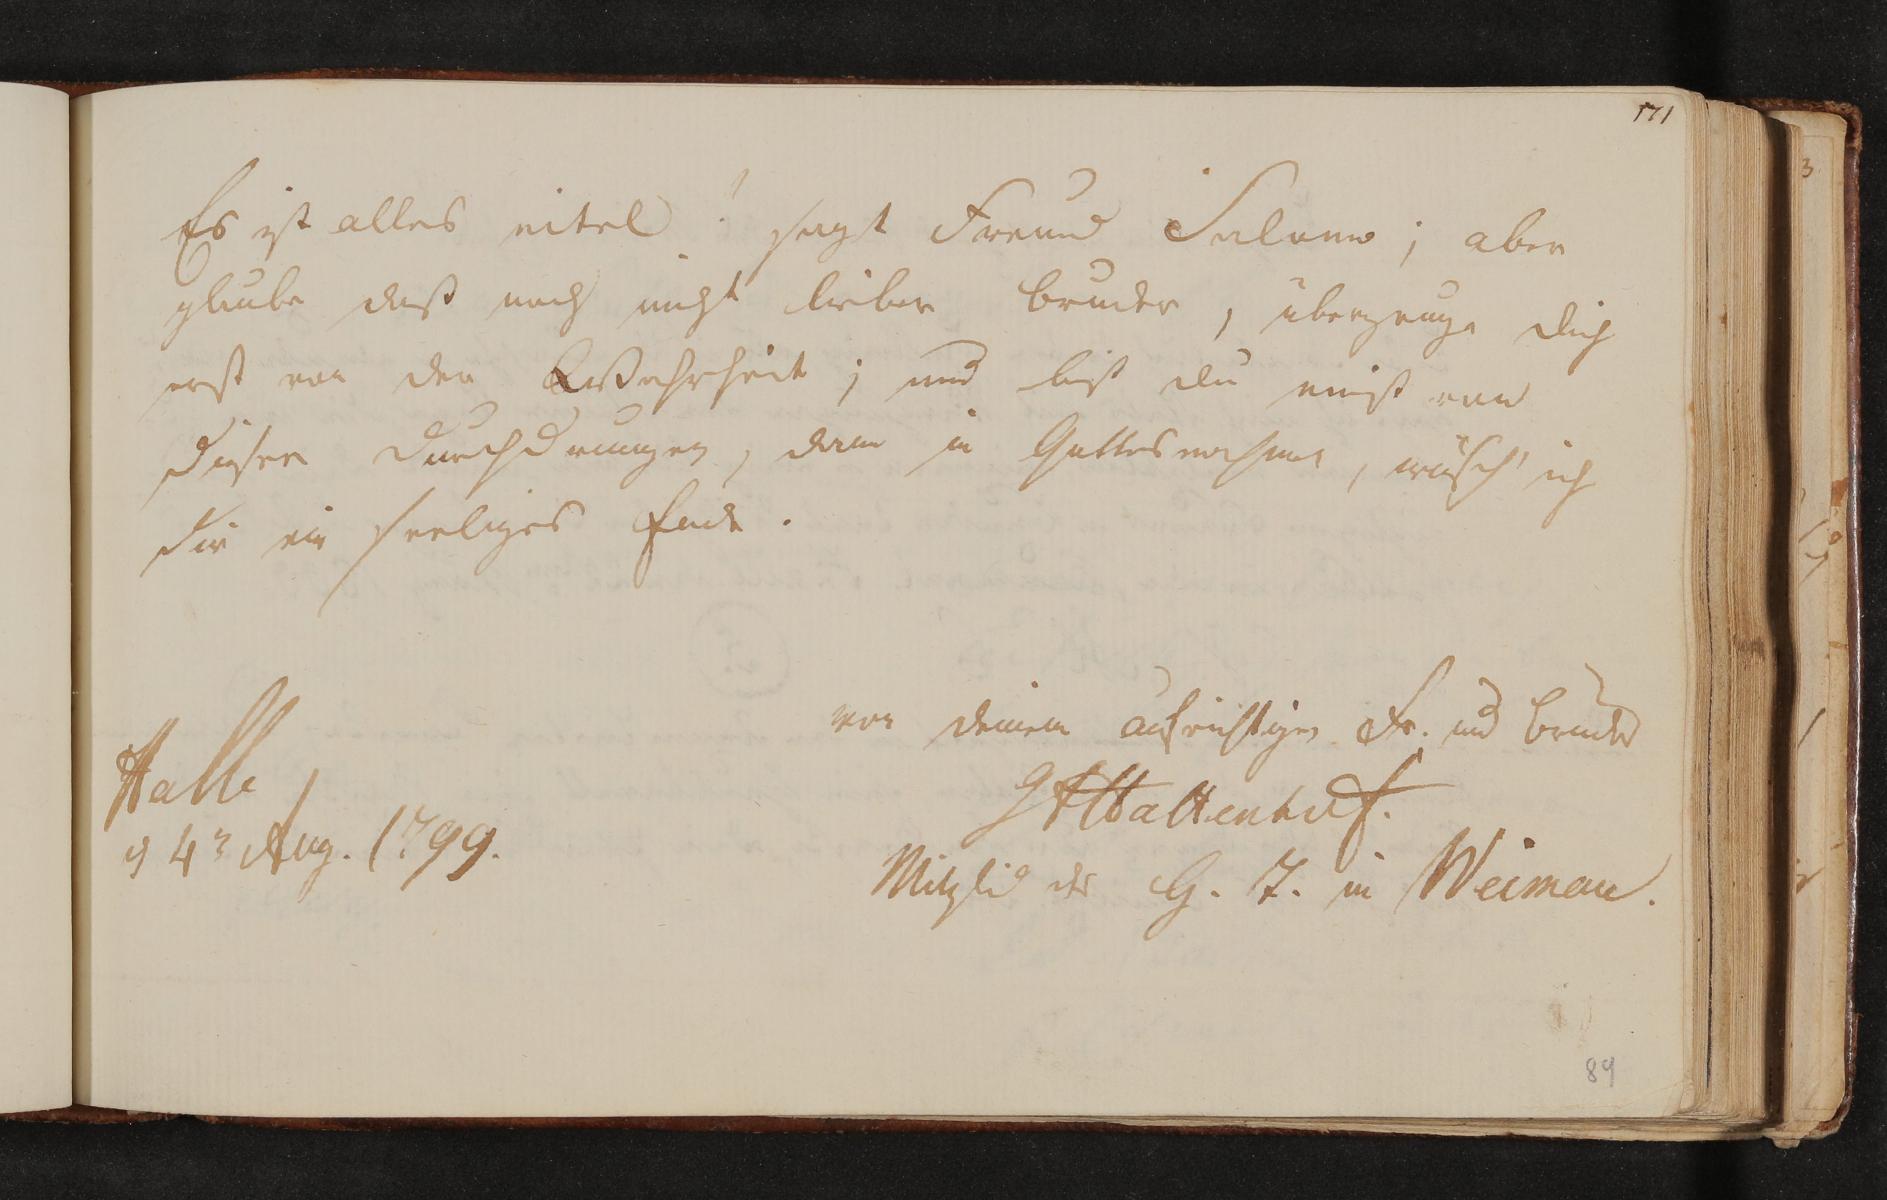 171
Es ist alles eitel! sagt Freund Salomo; aber
glaube daß noch nicht lieber Bruder, überzeuge dich
erst von der Wahrheit; und bist du einst von
dieser durchdrungen, dann in Gottesnahmen, wüsch' ich
dir ein seeliges Ende.
von deinem aufrichtigen Fr. und Bruder
Halle
d 43 Aug. 1799.
Mitglid der G. Z. in Weimar.
89
3